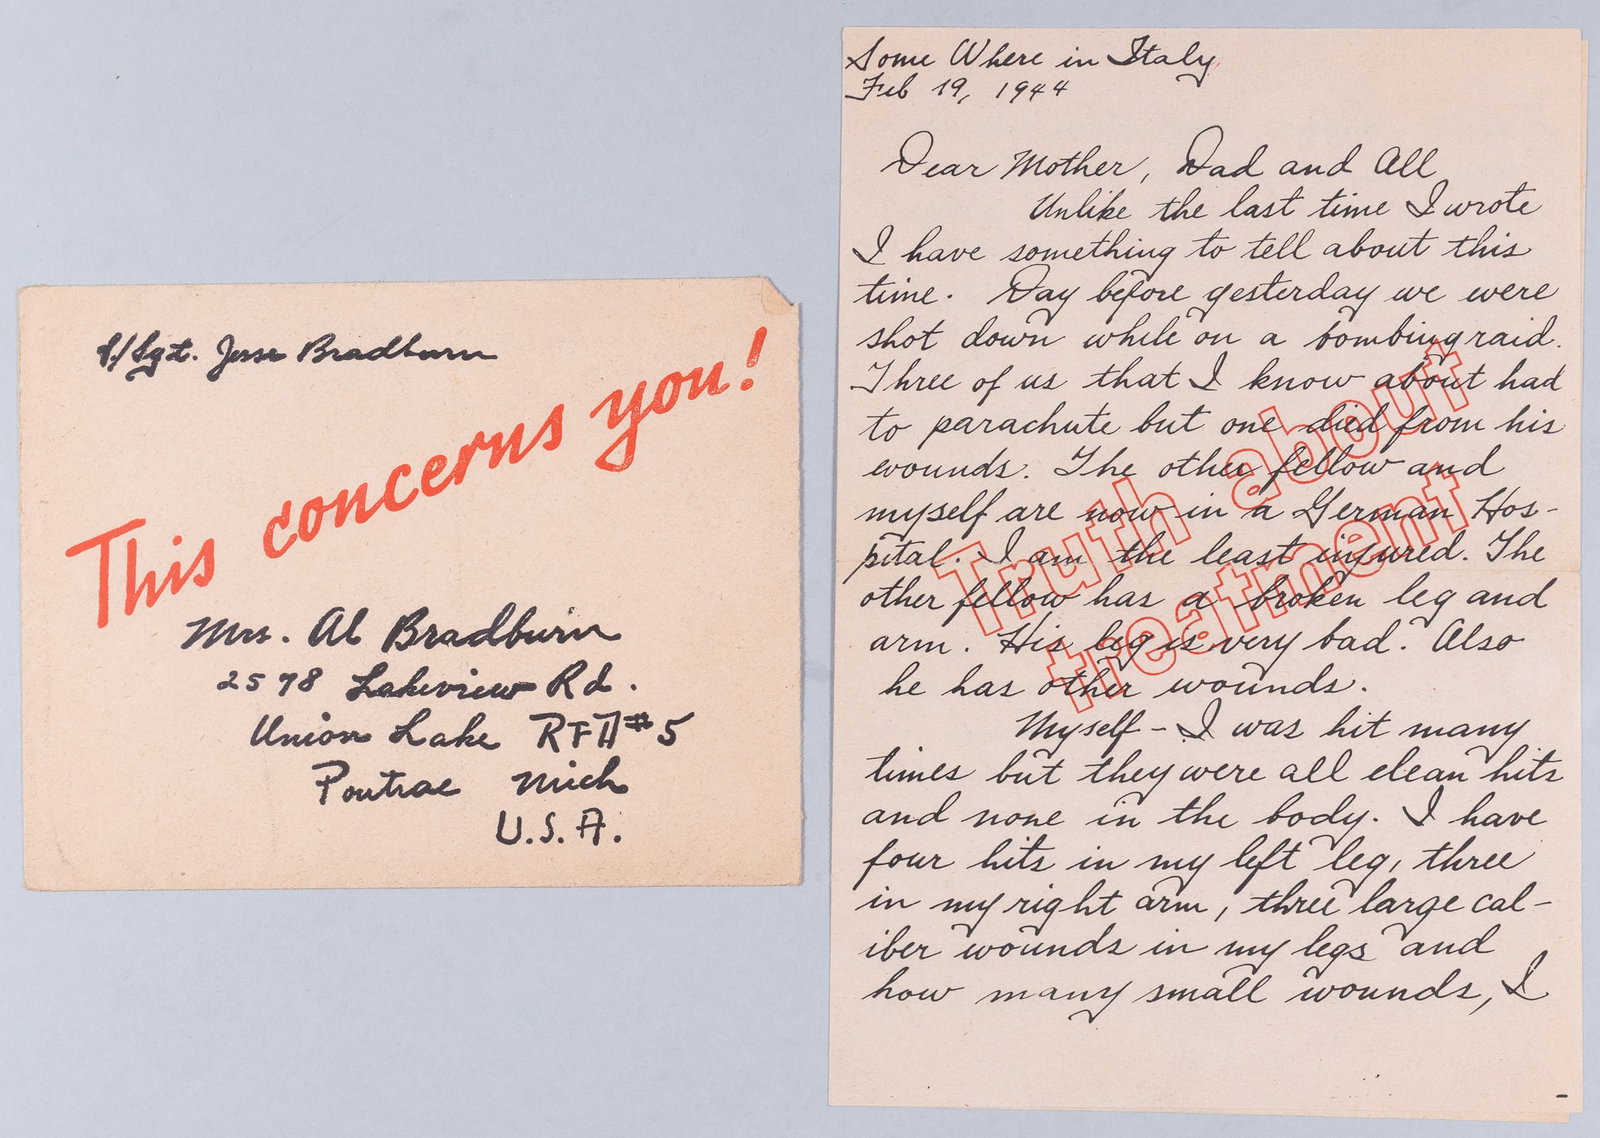 S/Sgt. Jesse Bradburn
This concerns you!
Mrs. Al Bradburn
2578 Lakeview Rd.
Union Lake RFD #5
Pontiac Mich
U.S.A.
Some Where in Italy
Feb 19, 1944
Dear Mother, Dad and All
Unlike the last time I wrote
I have something to tell about this
time. Day before yesterday we were
shot down while on a bombing raid.
Three of us that I know about had
to parachute but one died from his
wounds. The other fellow and
myself are now in a German Hos-
pital. I am the least injured. The
other fellow has a broken leg and
arm. His leg is very bad. Also
he has other wounds.
Myself - I was hit many
times but they were all clean hits
and none in the body. I have
four hits in my left leg, three
in my right arm, three large cal-
iber wounds in my legs and
how many small wounds, I
Truth about
treatment